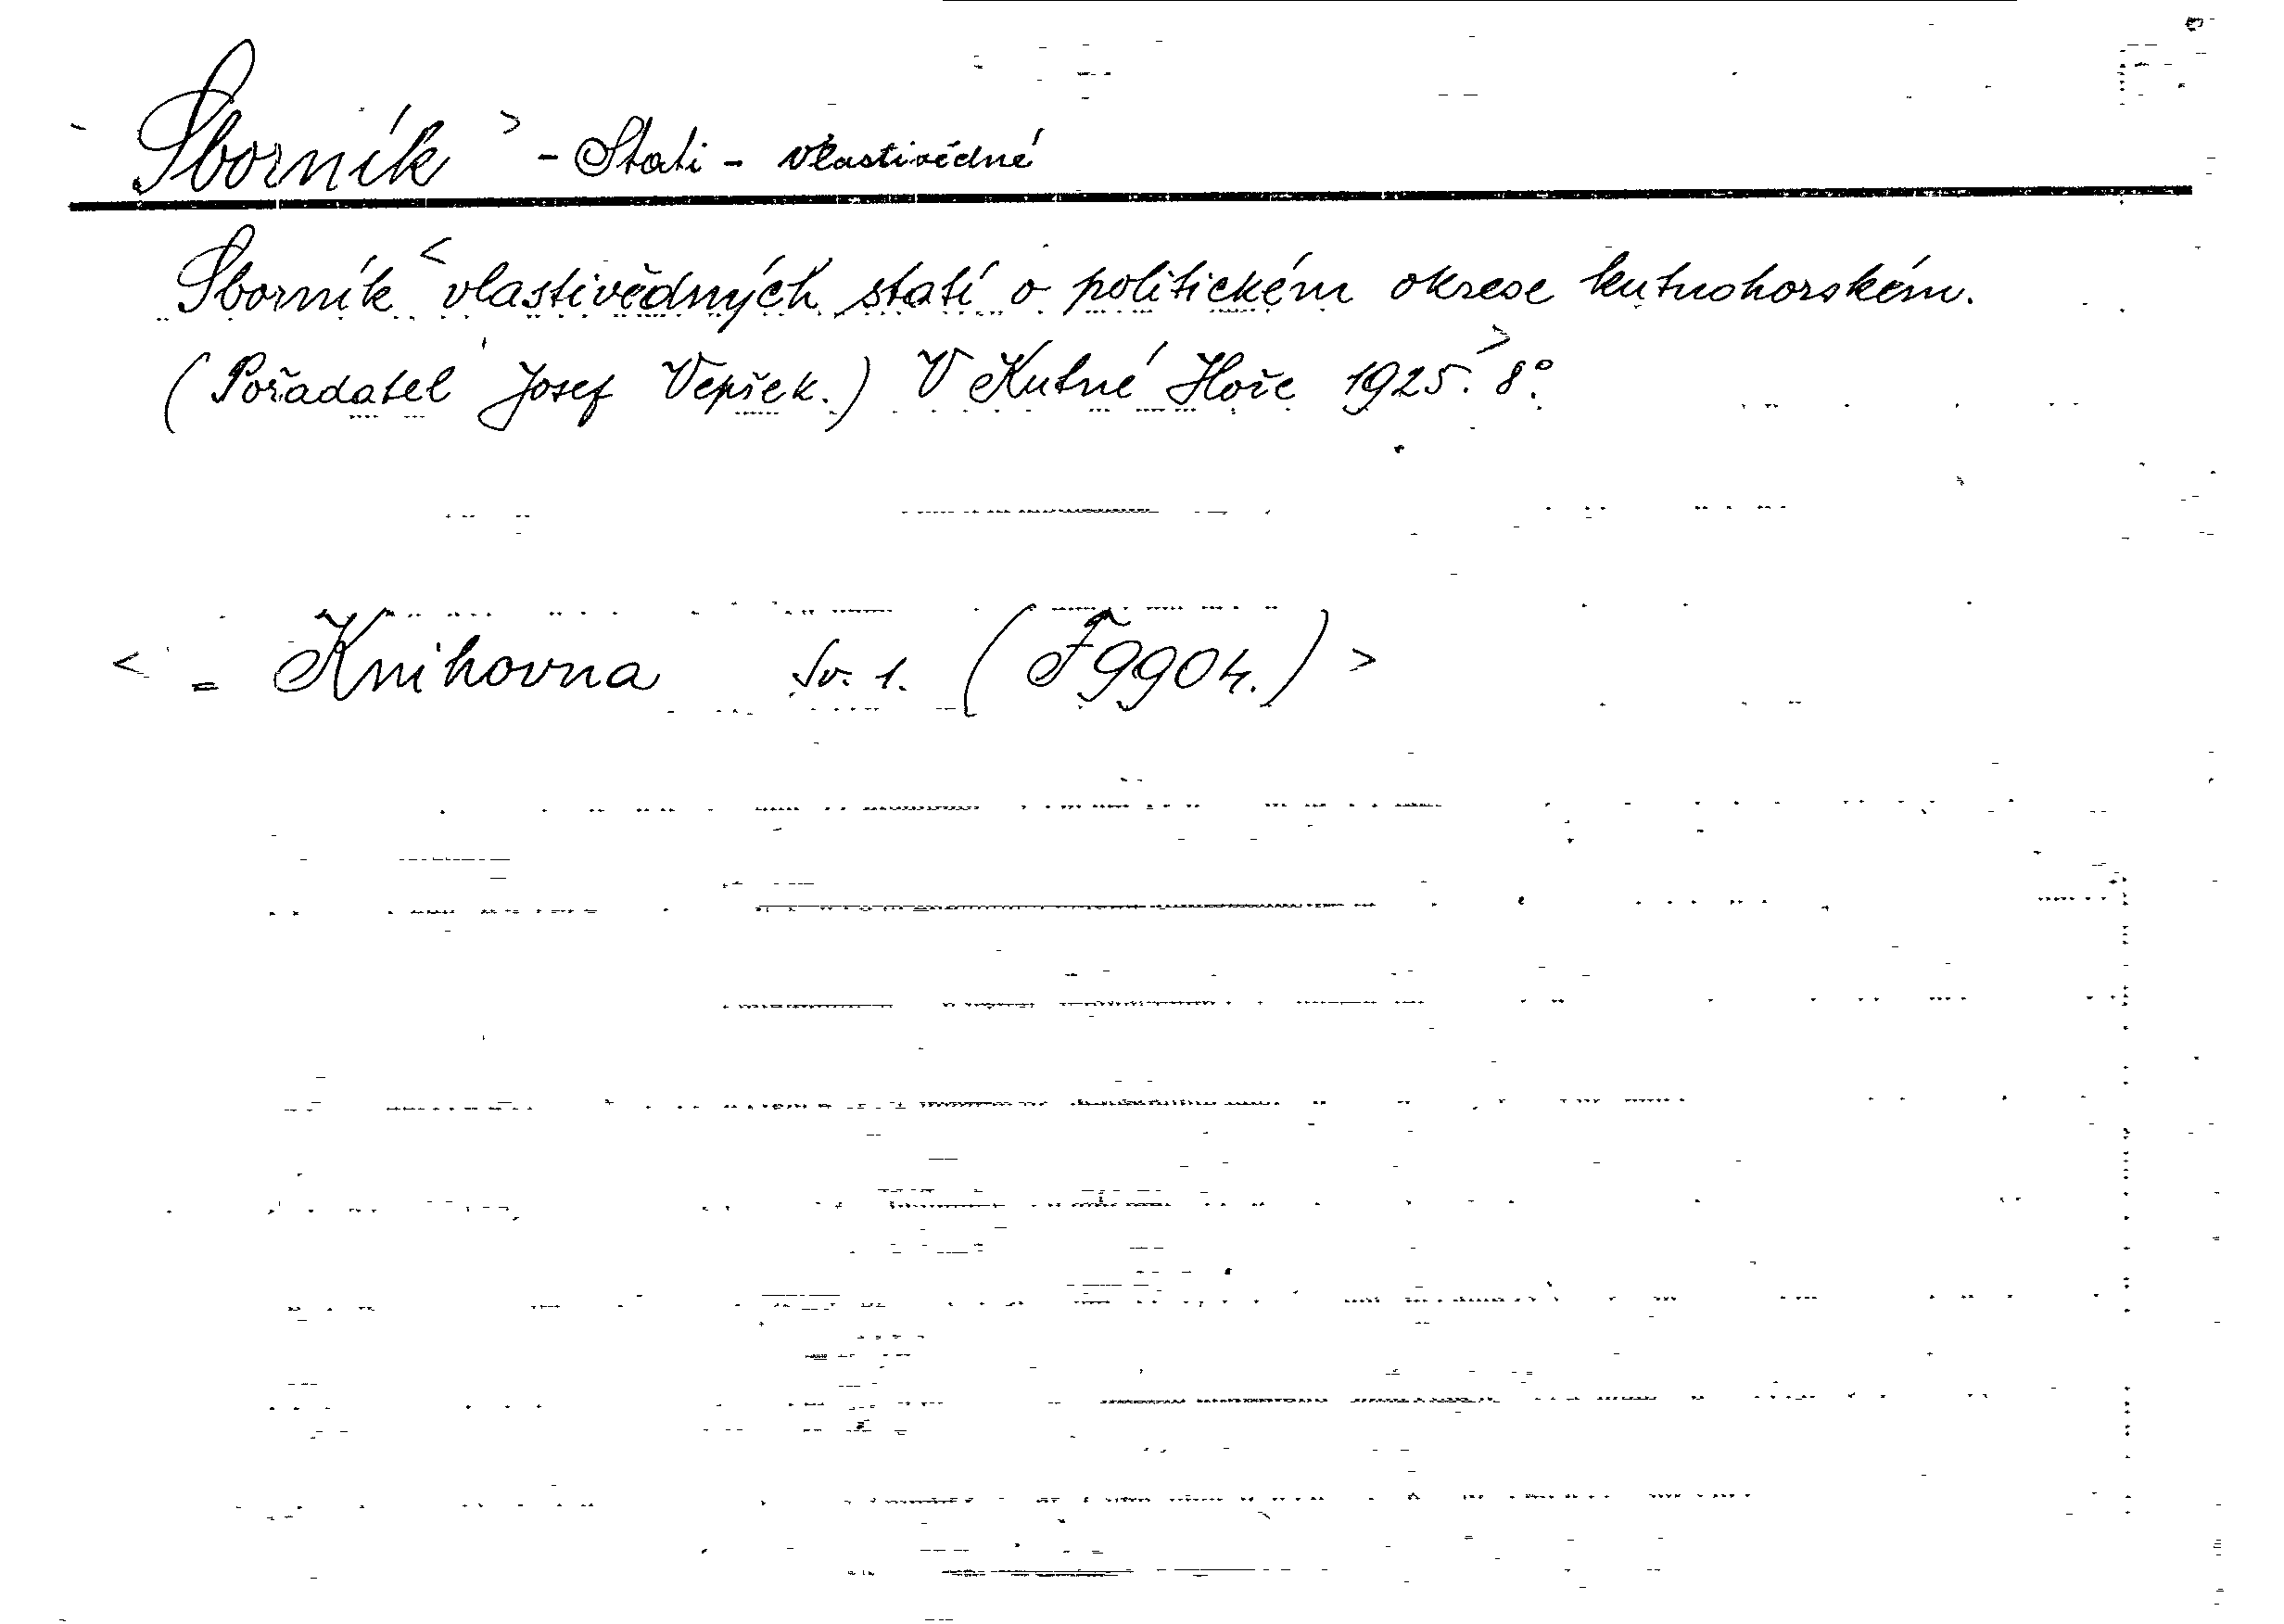 Sborník > - Stati - vlastivědné
Sborník < vlastivědných statí o politickém okrese kutnohorském.
(Pořadatel Josef Vepřek.) V Kutné Hoře 1925. > 8°.
< = Knihovna Sv. 1. (F 9904.) >